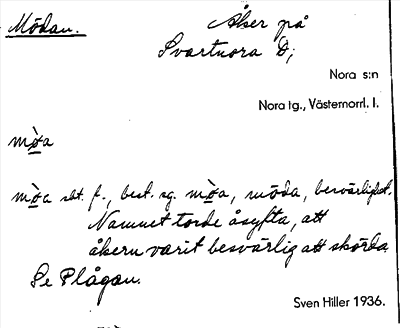 Mödan. Åker på
Svartnora D;
Nora s:n
Nora tg., Västernorrl. l.
mòa
mòa sbt. f., best. sg. mòa, möda, besvärlighet.
Namnet torde åsyfta, att
åkern varit besvärlig att skörda.
Se Plågan.
Sven Hiller 1936.